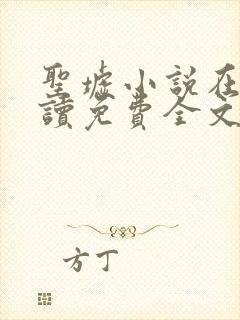 聖墟小說在
讀免費全文
方丁